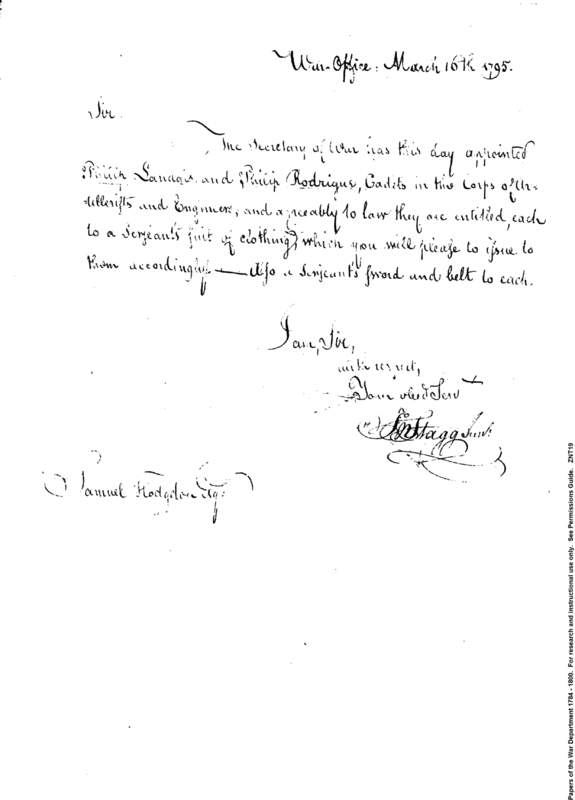 War-Office: March 16th 1795.
Sir
The Secretary of War has this day appointed
Philip Landais and Philip Rodrigue, Cadets in the Corps of Ar-
tillerists and Engineers, and agreeably to law they are entitled, each
to a Serjeant's suit of clothing, which you will please to issue to
them accordingly — Also a Serjeant's sword and belt to each.
I am, Sir,
with respect,
Your obed Servt
Jno Stagg Junr
Samuel Hodgdon Esqr
Papers of the War Department 1784 - 1800. For research and instructional use only. See Permissions Guide. ZNT19